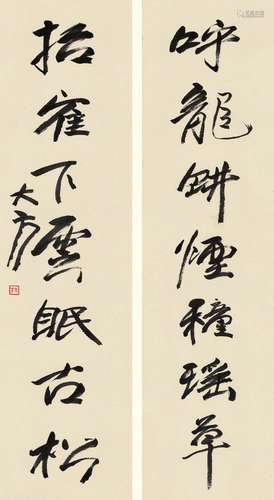 呼龍畊煙種瑤草
招隺下雲眠古松
大